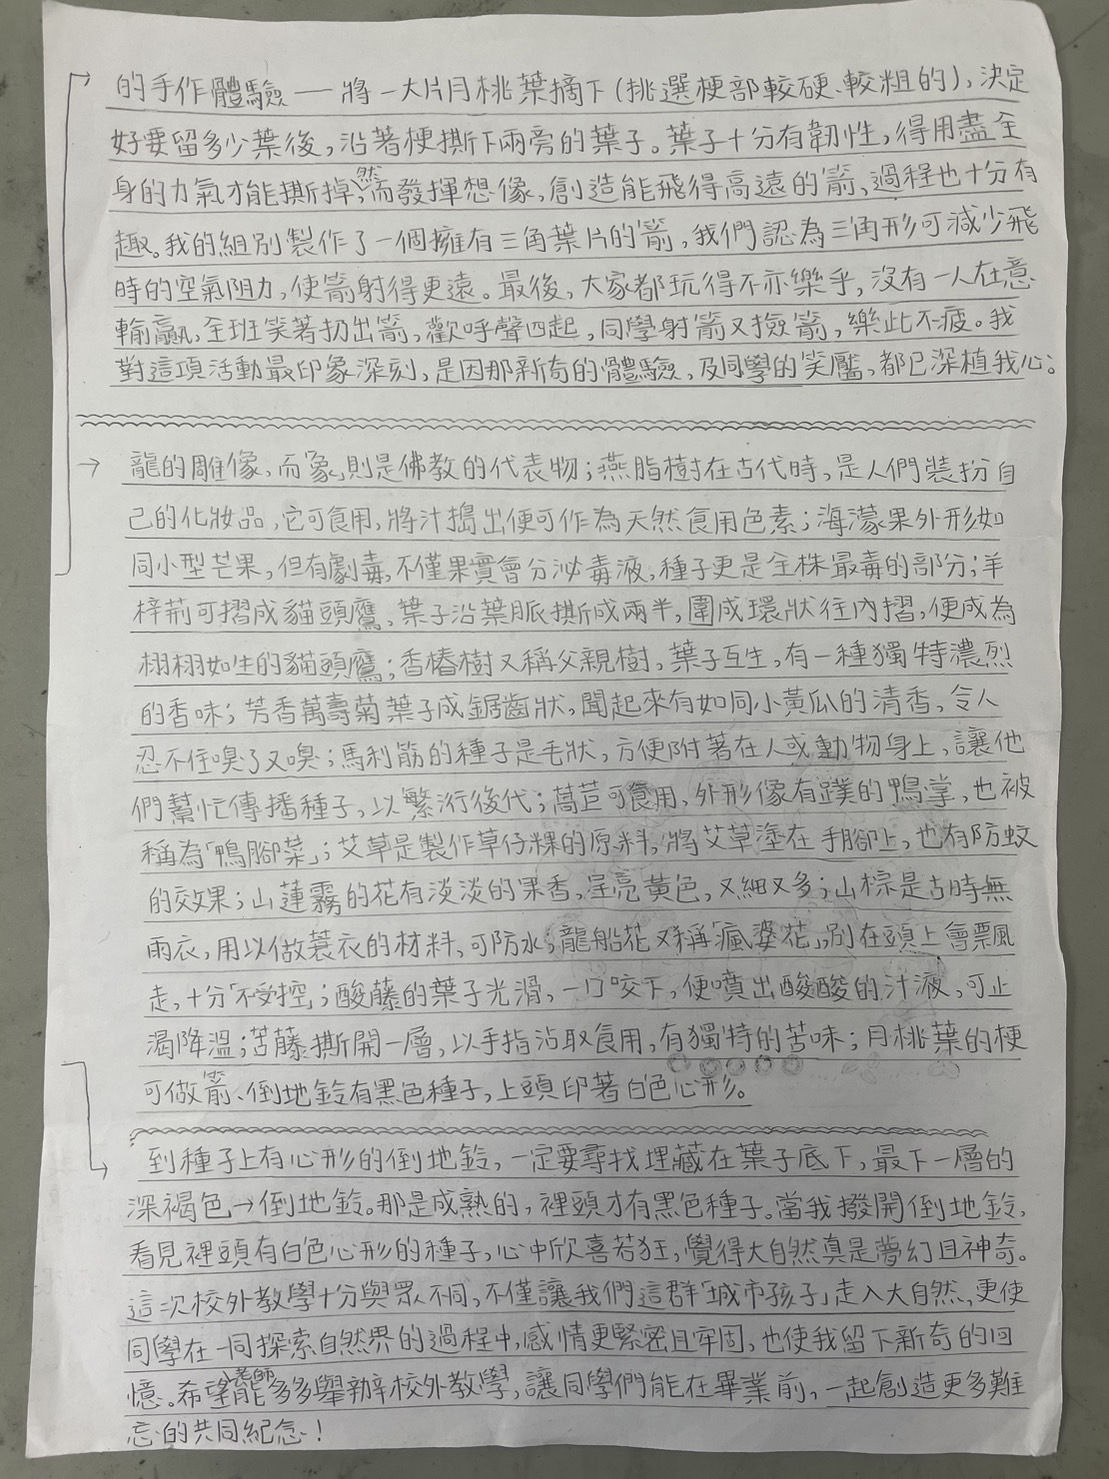 的手作體驗──將一大片月桃葉摘下(挑選梗部較硬、較粗的),決定
好要留多少葉後,沿著梗撕下兩旁的葉子。葉子十分有韌性,得用盡全
身的力氣才能撕掉,然而發揮想像,創造能飛得高遠的箭,過程也十分有
趣。我的組別製作了一個擁有三角葉片的箭,我們認為三角形可減少飛
時的空氣阻力,使箭射得更遠。最後,大家都玩得不亦樂乎,沒有一人在意
輸贏,全班笑著扔出箭,歡呼聲四起,同學射箭又撿箭,樂此不疲。我
對這項活動最印象深刻,是因那新奇的體驗,及同學的笑靨,都已深植我心。
龍的雕像,而「象」則是佛教的代表物;燕脂樹在古代時,是人們裝扮自
己的化妝品,它可食用,將汁搗出便可作為天然食用色素;海濛果外形如
同小型芒果,但有劇毒,不僅果實會分泌毒液,種子更是全株最毒的部分;羊
梓荊可摺成貓頭鷹,葉子沿葉脈撕成兩半,圍成環狀往內摺,便成為
栩栩如生的貓頭鷹;香椿樹又稱父親樹,葉子互生,有一種獨特濃烈
的香味;芳香萬壽菊葉子成鋸齒狀,聞起來有如同小黃瓜的清香,令人
忍不住嗅了又嗅;馬利筋的種子是毛狀,方便附著在人或動物身上,讓他
們幫忙傳播種子,以繁衍後代;萵苣可食用,外形像有蹼的鴨掌,也被
稱為「鴨腳菜」;艾草是製作草仔粿的原料,將艾草塗在手腳上,也有防蚊
的效果;山蓮霧的花有淡淡的果香,呈亮黃色,又細又多;山棕是古時無
雨衣,用以做蓑衣的材料,可防水;龍船花又稱「瘋婆花」,別在頭上會飄風
走,十分「不受控」;酸藤的葉子光滑,一口咬下,便噴出酸酸的汁液,可止
渴降溫;苦藤撕開一層,以手指沾取食用,有獨特的苦味;月桃葉的梗
可做箭、倒地鈴有黑色種子,上頭印著白色心形。
到種子上有心形的倒地鈴,一定要尋找埋藏在葉子底下,最下一層的
深褐色→倒地鈴。那是成熟的,裡頭才有黑色種子。當我撥開倒地鈴,
看見裡頭有白色心形的種子,心中欣喜若狂,覺得大自然真是夢幻且神奇。
這次校外教學十分與眾不同,不僅讓我們這群「城市孩子」走入大自然,更使
同學在一同探索自然界的過程中,感情更緊密且牢固,也使我留下新奇的回
憶。希望老師能多多舉辦校外教學,讓同學們能在畢業前,一起創造更多難
忘的共同紀念!